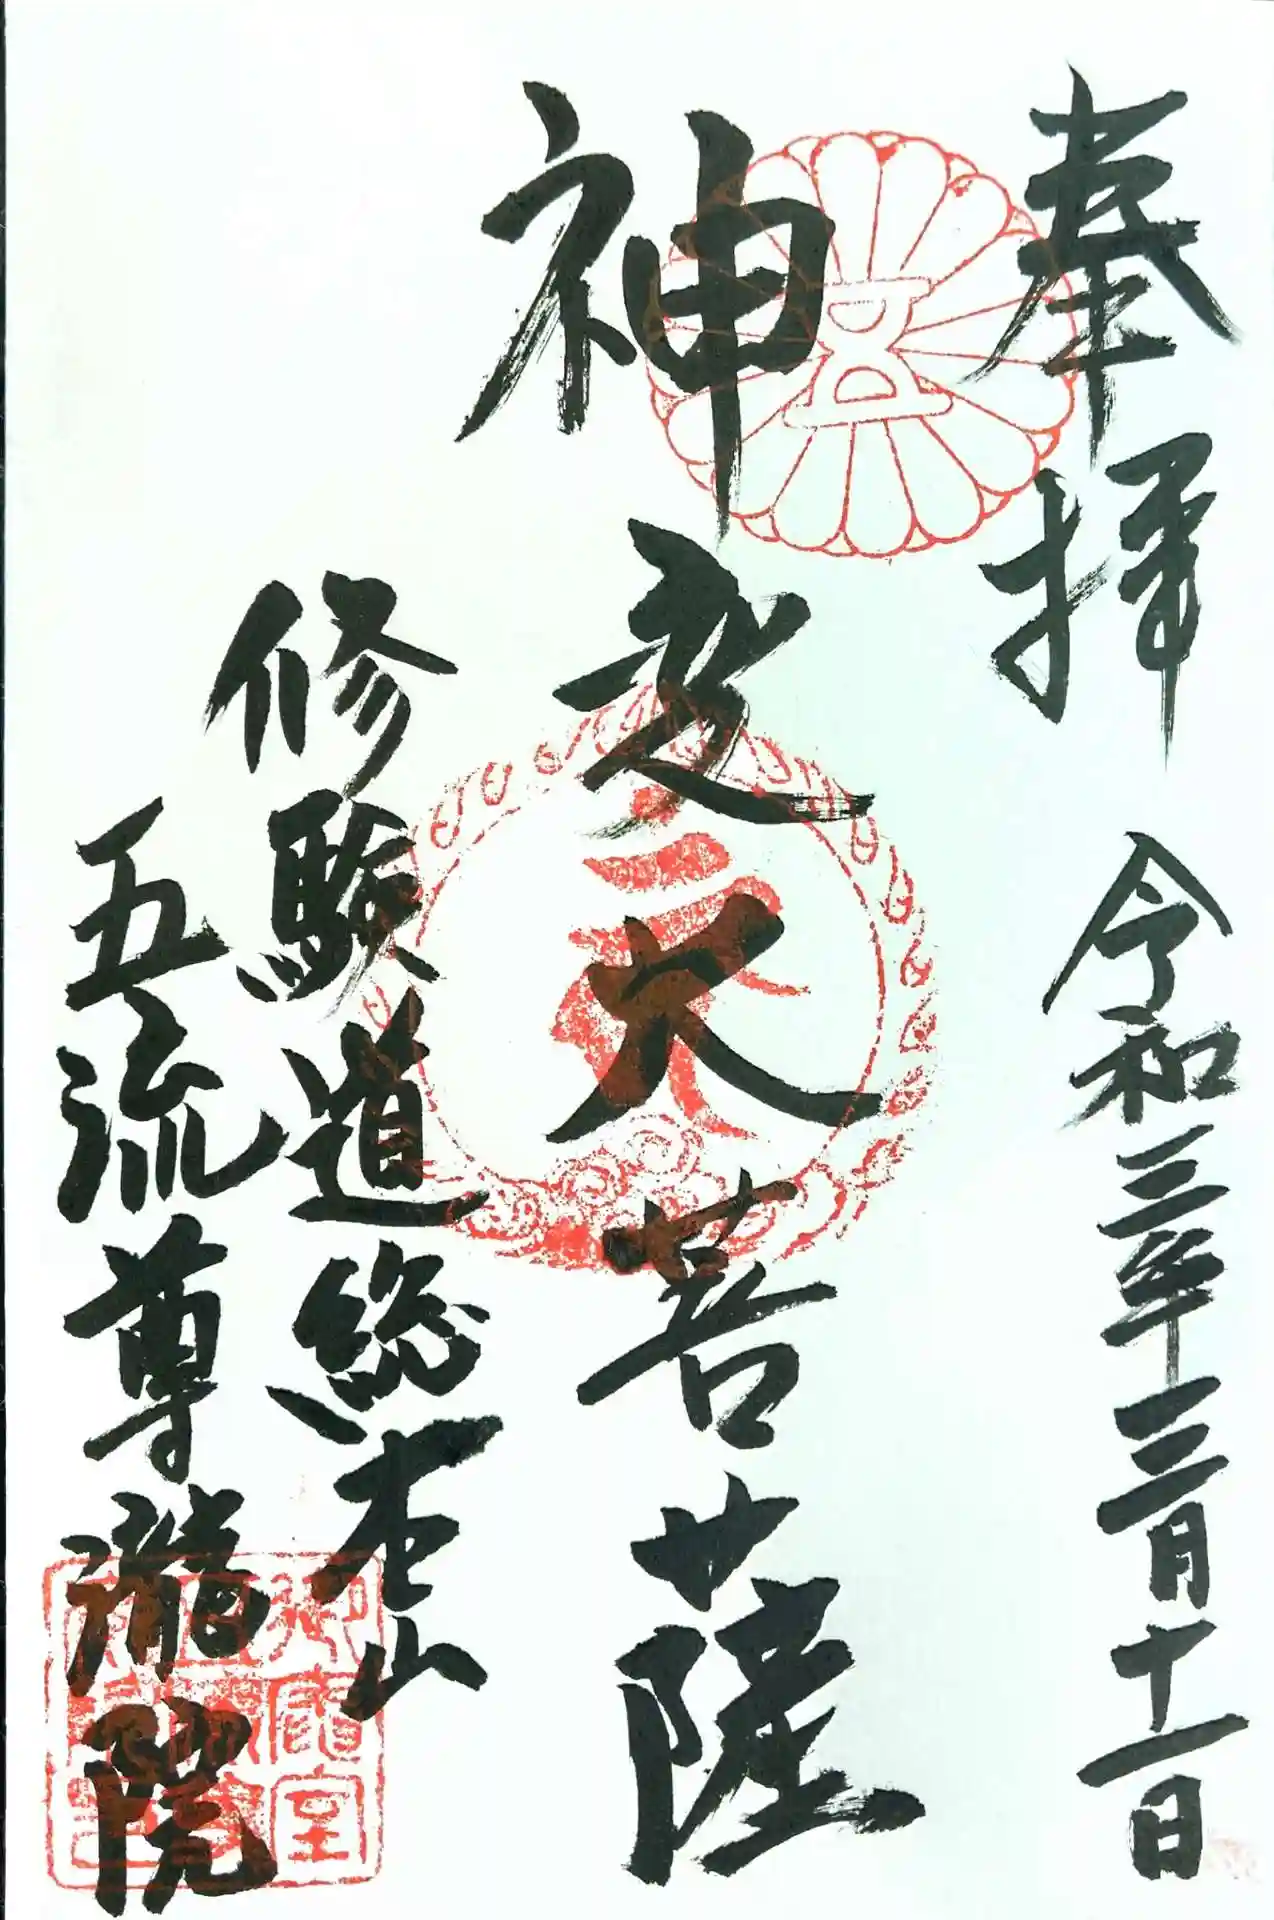 奉拝
令和三年三月十一日
神変大菩薩
修験道総本山
五流尊瀧院